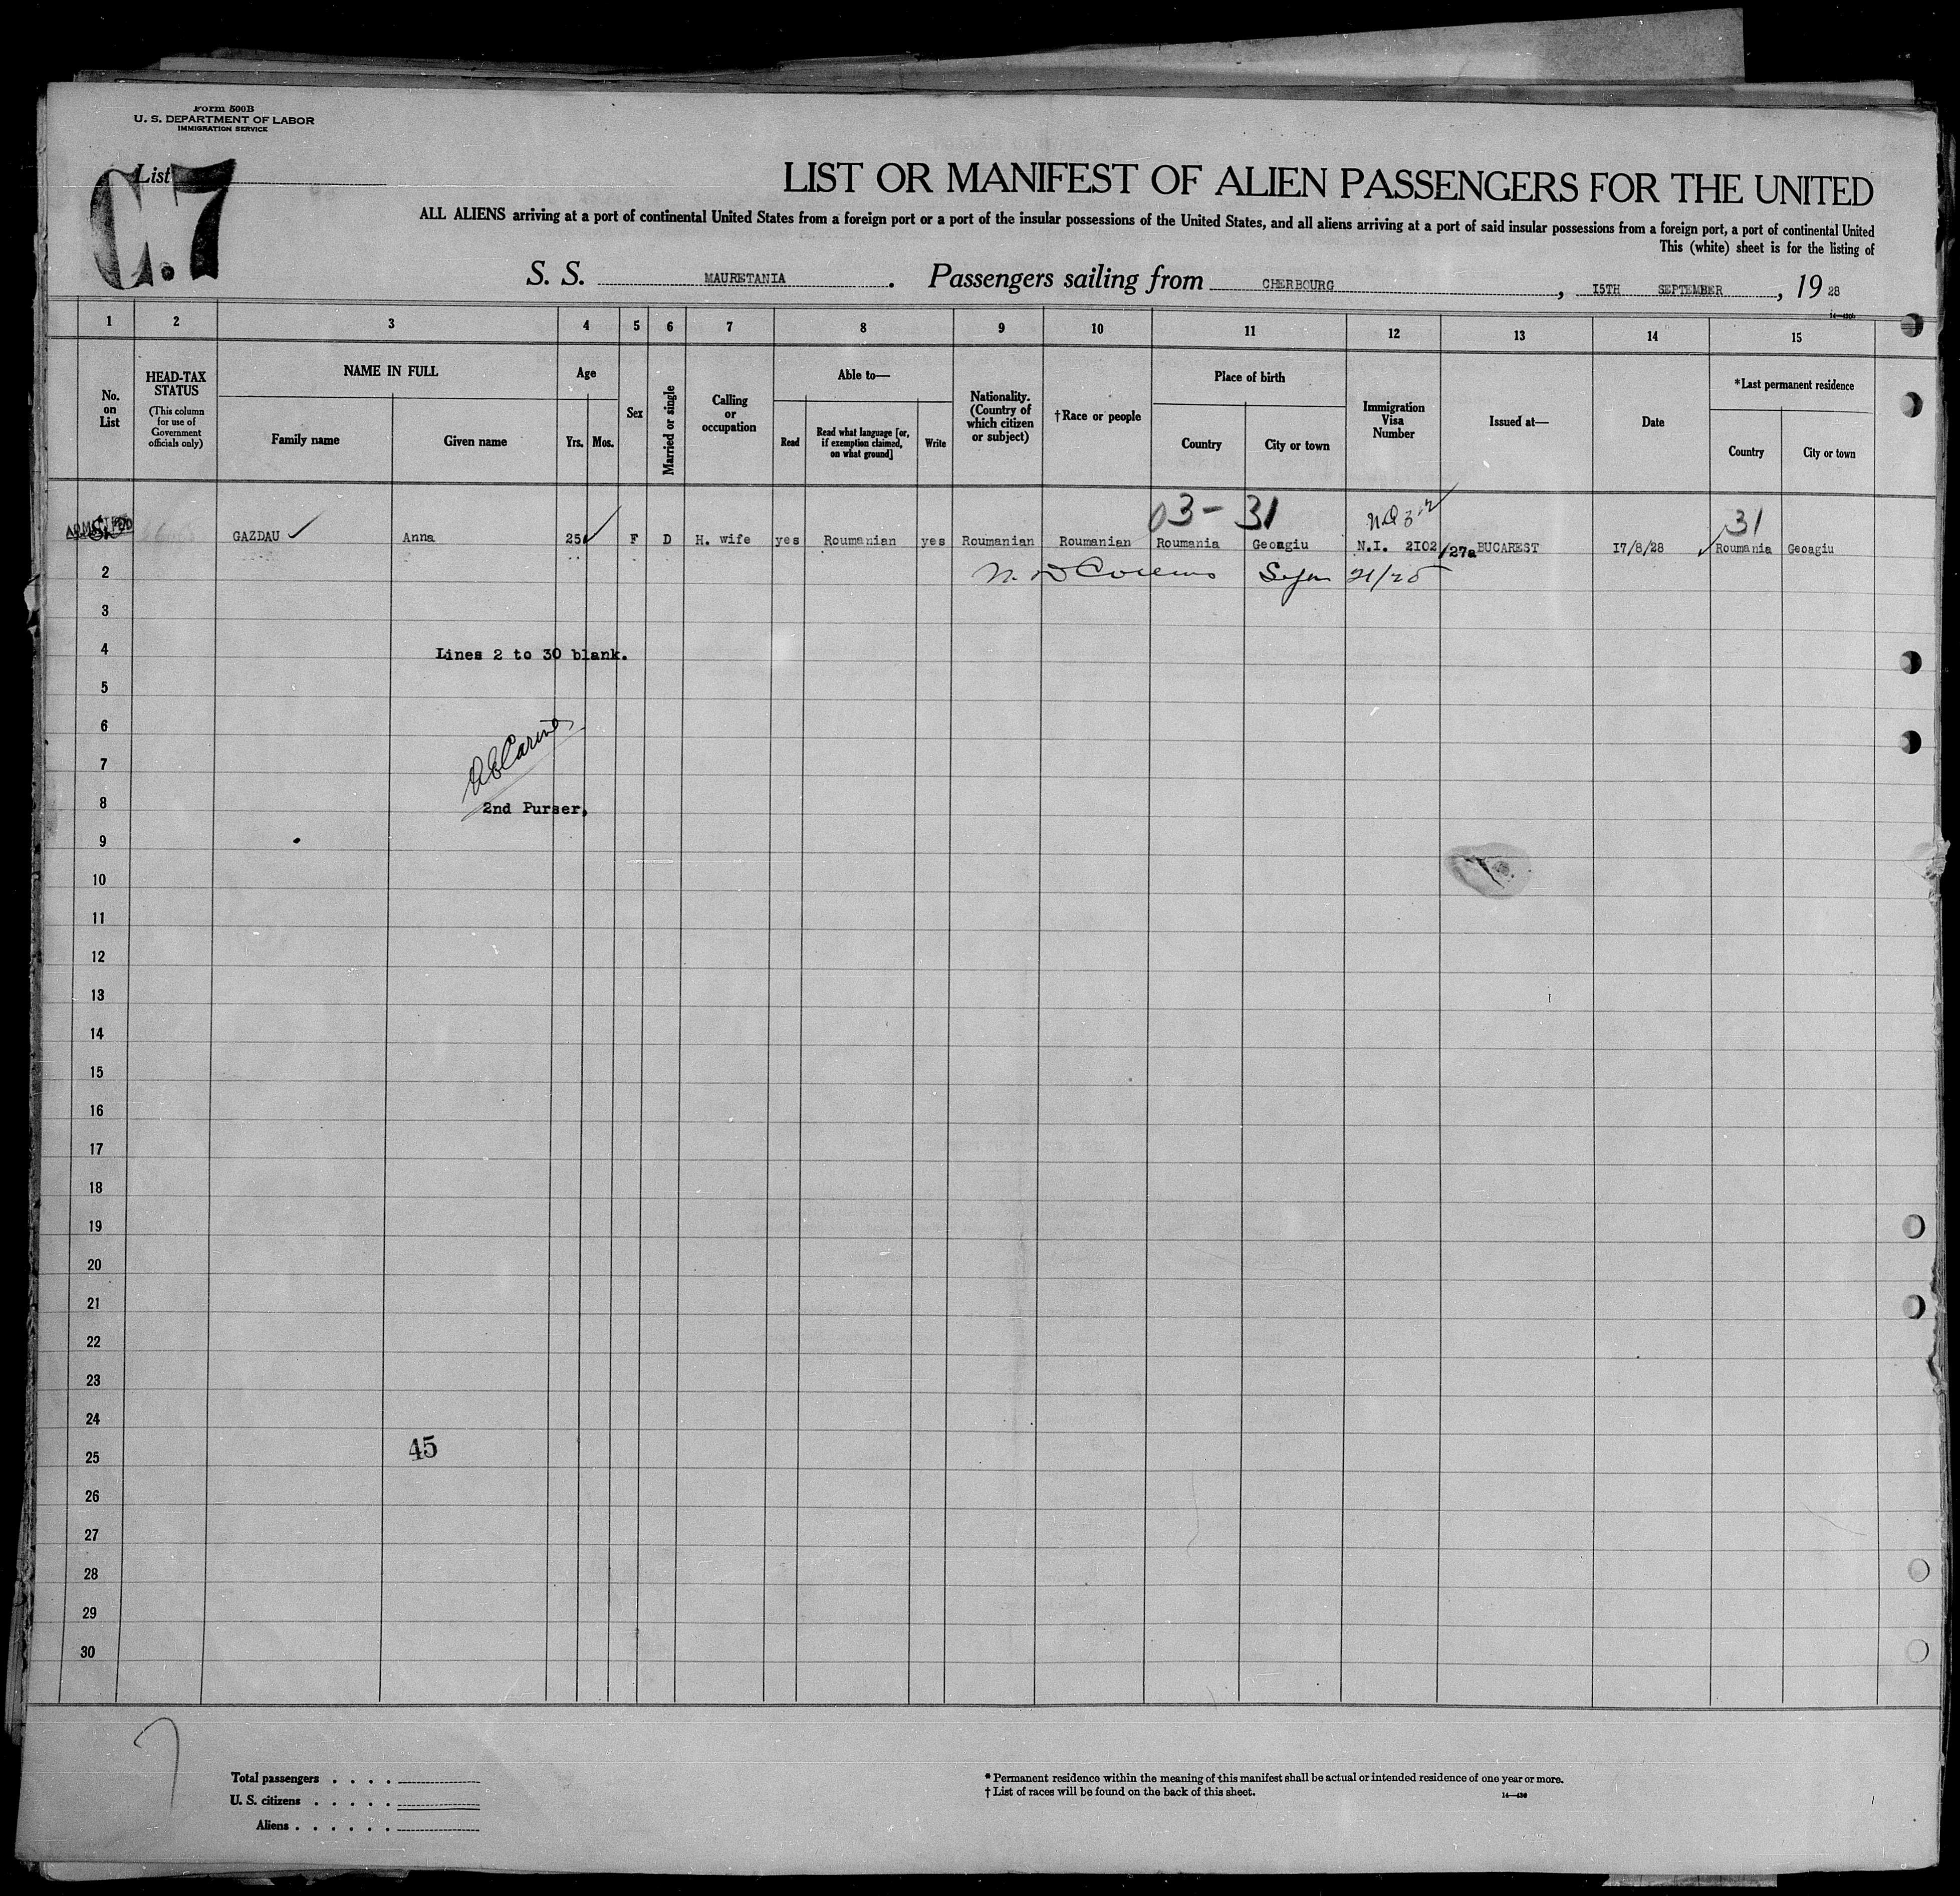 Form 500B
U. S. DEPARTMENT OF LABOR
IMMIGRATION SERVICE
List
C.7
LIST OR MANIFEST OF ALIEN PASSENGERS FOR THE UNITED
ALL ALIENS arriving at a port of continental United States from a foreign port or a port of the insular possessions of the United States, and all aliens arriving at a port of said insular possessions from a foreign port, a port of continental United
This (white) sheet is for the listing of
S. S. MAURETANIA. Passengers sailing from CHERBOURG, 15TH SEPTEMBER, 19 28
1 2 3 4 5 6 7 8 9 10 11 12 13 14 15
No. on List
HEAD-TAX STATUS
(This column for use of Government officials only)
NAME IN FULL
Family name
Given name
Age
Yrs.
Mos.
Sex
Married or single
Calling or occupation
Able to—
Read
Read what language [or, if exemption claimed, on what ground]
Write
Nationality. (Country of which citizen or subject)
†Race or people
Place of birth
Country
City or town
Immigration Visa Number
Issued at—
Date
*Last permanent residence
Country
City or town
03-31
31
ADMITTED GAZDAU Anna 25 F D H. wife yes Roumanian yes Roumanian Roumanian Roumania Geoagiu N.I. 2102/27a BUCAREST 17/8/28 Roumania Geoagiu
2
3
4 Lines 2 to 30 blank.
5
6
7
8 2nd Purser.
9
10
11
12
13
14
15
16
17
18
19
20
21
22
23
24
25 45
26
27
28
29
30
Total passengers . . . .
U. S. citizens . . . . .
Aliens . . . . . .
* Permanent residence within the meaning of this manifest shall be actual or intended residence of one year or more.
† List of races will be found on the back of this sheet.